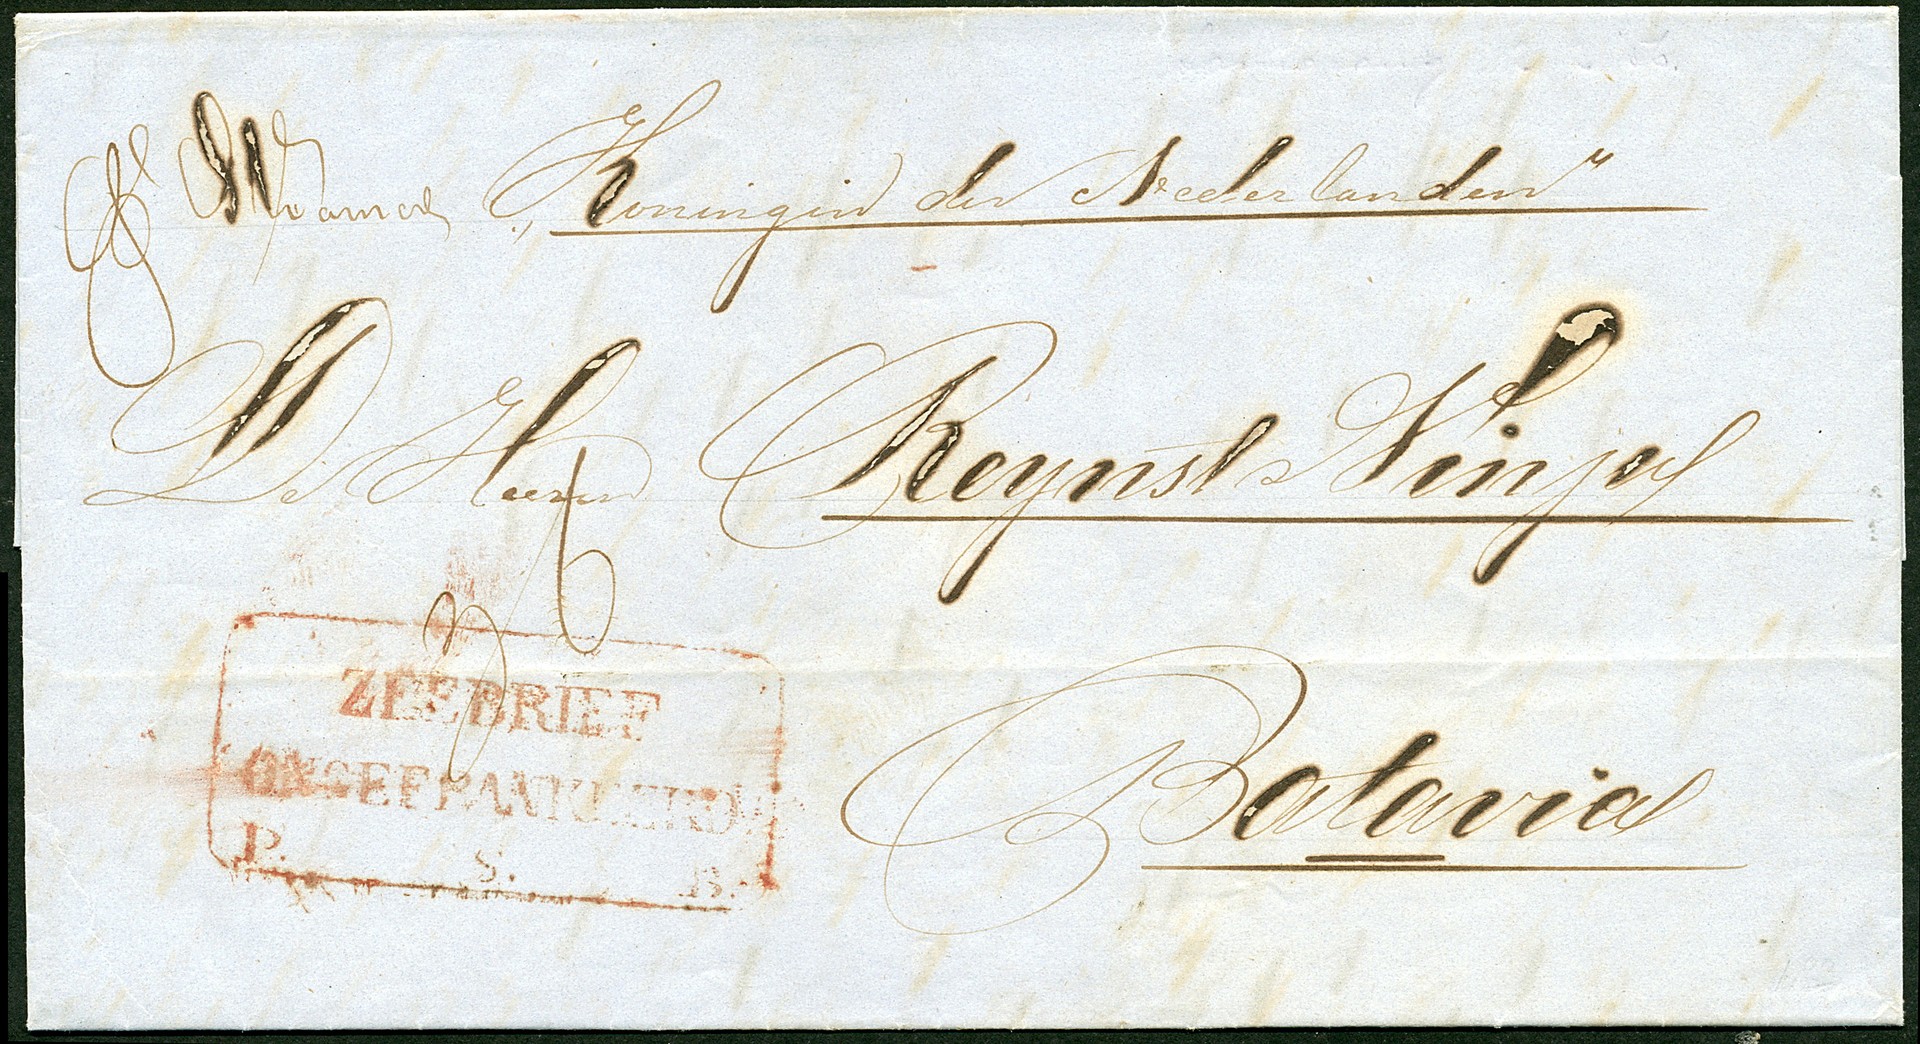 pr Z. M. Stoomer „Koningin der Nederlanden"
De Heeren Reynst & Vinju
Batavia
ZEEBRIEF
ONGEFRANKEERD
P. S. B.